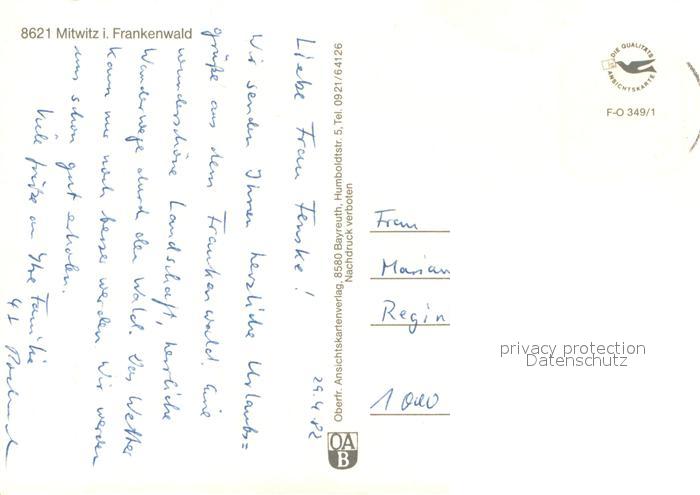 8621 Mitwitz i. Frankenwald
29.4.82
Liebe Frau Fenske!
Wir senden Ihnen herzliche Urlaubs=
grüße aus dem Frankenwald. Eine
wunderschöne Landschaft, herrliche
Wanderwege durch den Wald. Das Wetter
kann nur noch besser werden. Wir werden
uns schon gut erholen.
Viele Grüße an Ihre Familie
Oberfr. Ansichtskartenverlag, 8580 Bayreuth, Humboldtstr. 5, Tel. 0921/64126
Nachdruck verboten
OA
B
DIE QUALITÄTS
ANSICHTSKARTE
F-O 349/1
Frau
Marian
Regin
1000
privacy protection
Datenschutz